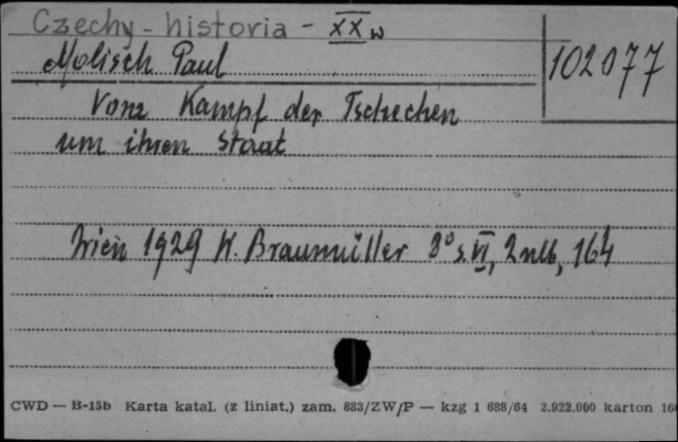 Czechy - historia - XX w
Molisch Paul
102077
Vom Kampf der Tschechen
um ihren Staat
Wien 1929 W. Braumüller 8° s. VI, 2 nlb, 164
CWD — B-15b Karta katal. (z liniat.) zam. 883/ZW/P — kzg 1 688/64 2.922.000 karton 16